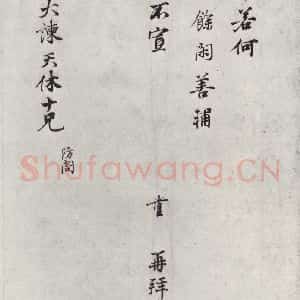 若何
餘閏善補
不宣
重 再拜
大諫天休十兄
防閤
Shufawang.CN